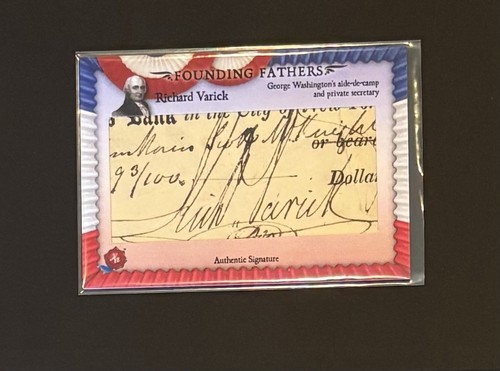 FOUNDING FATHERS
Richard Varick
George Washington's aide-de-camp
and private secretary
Bank in the City of New
Morris Scott
or bear
93/100
Dolla
Rich Varick
Authentic Signature